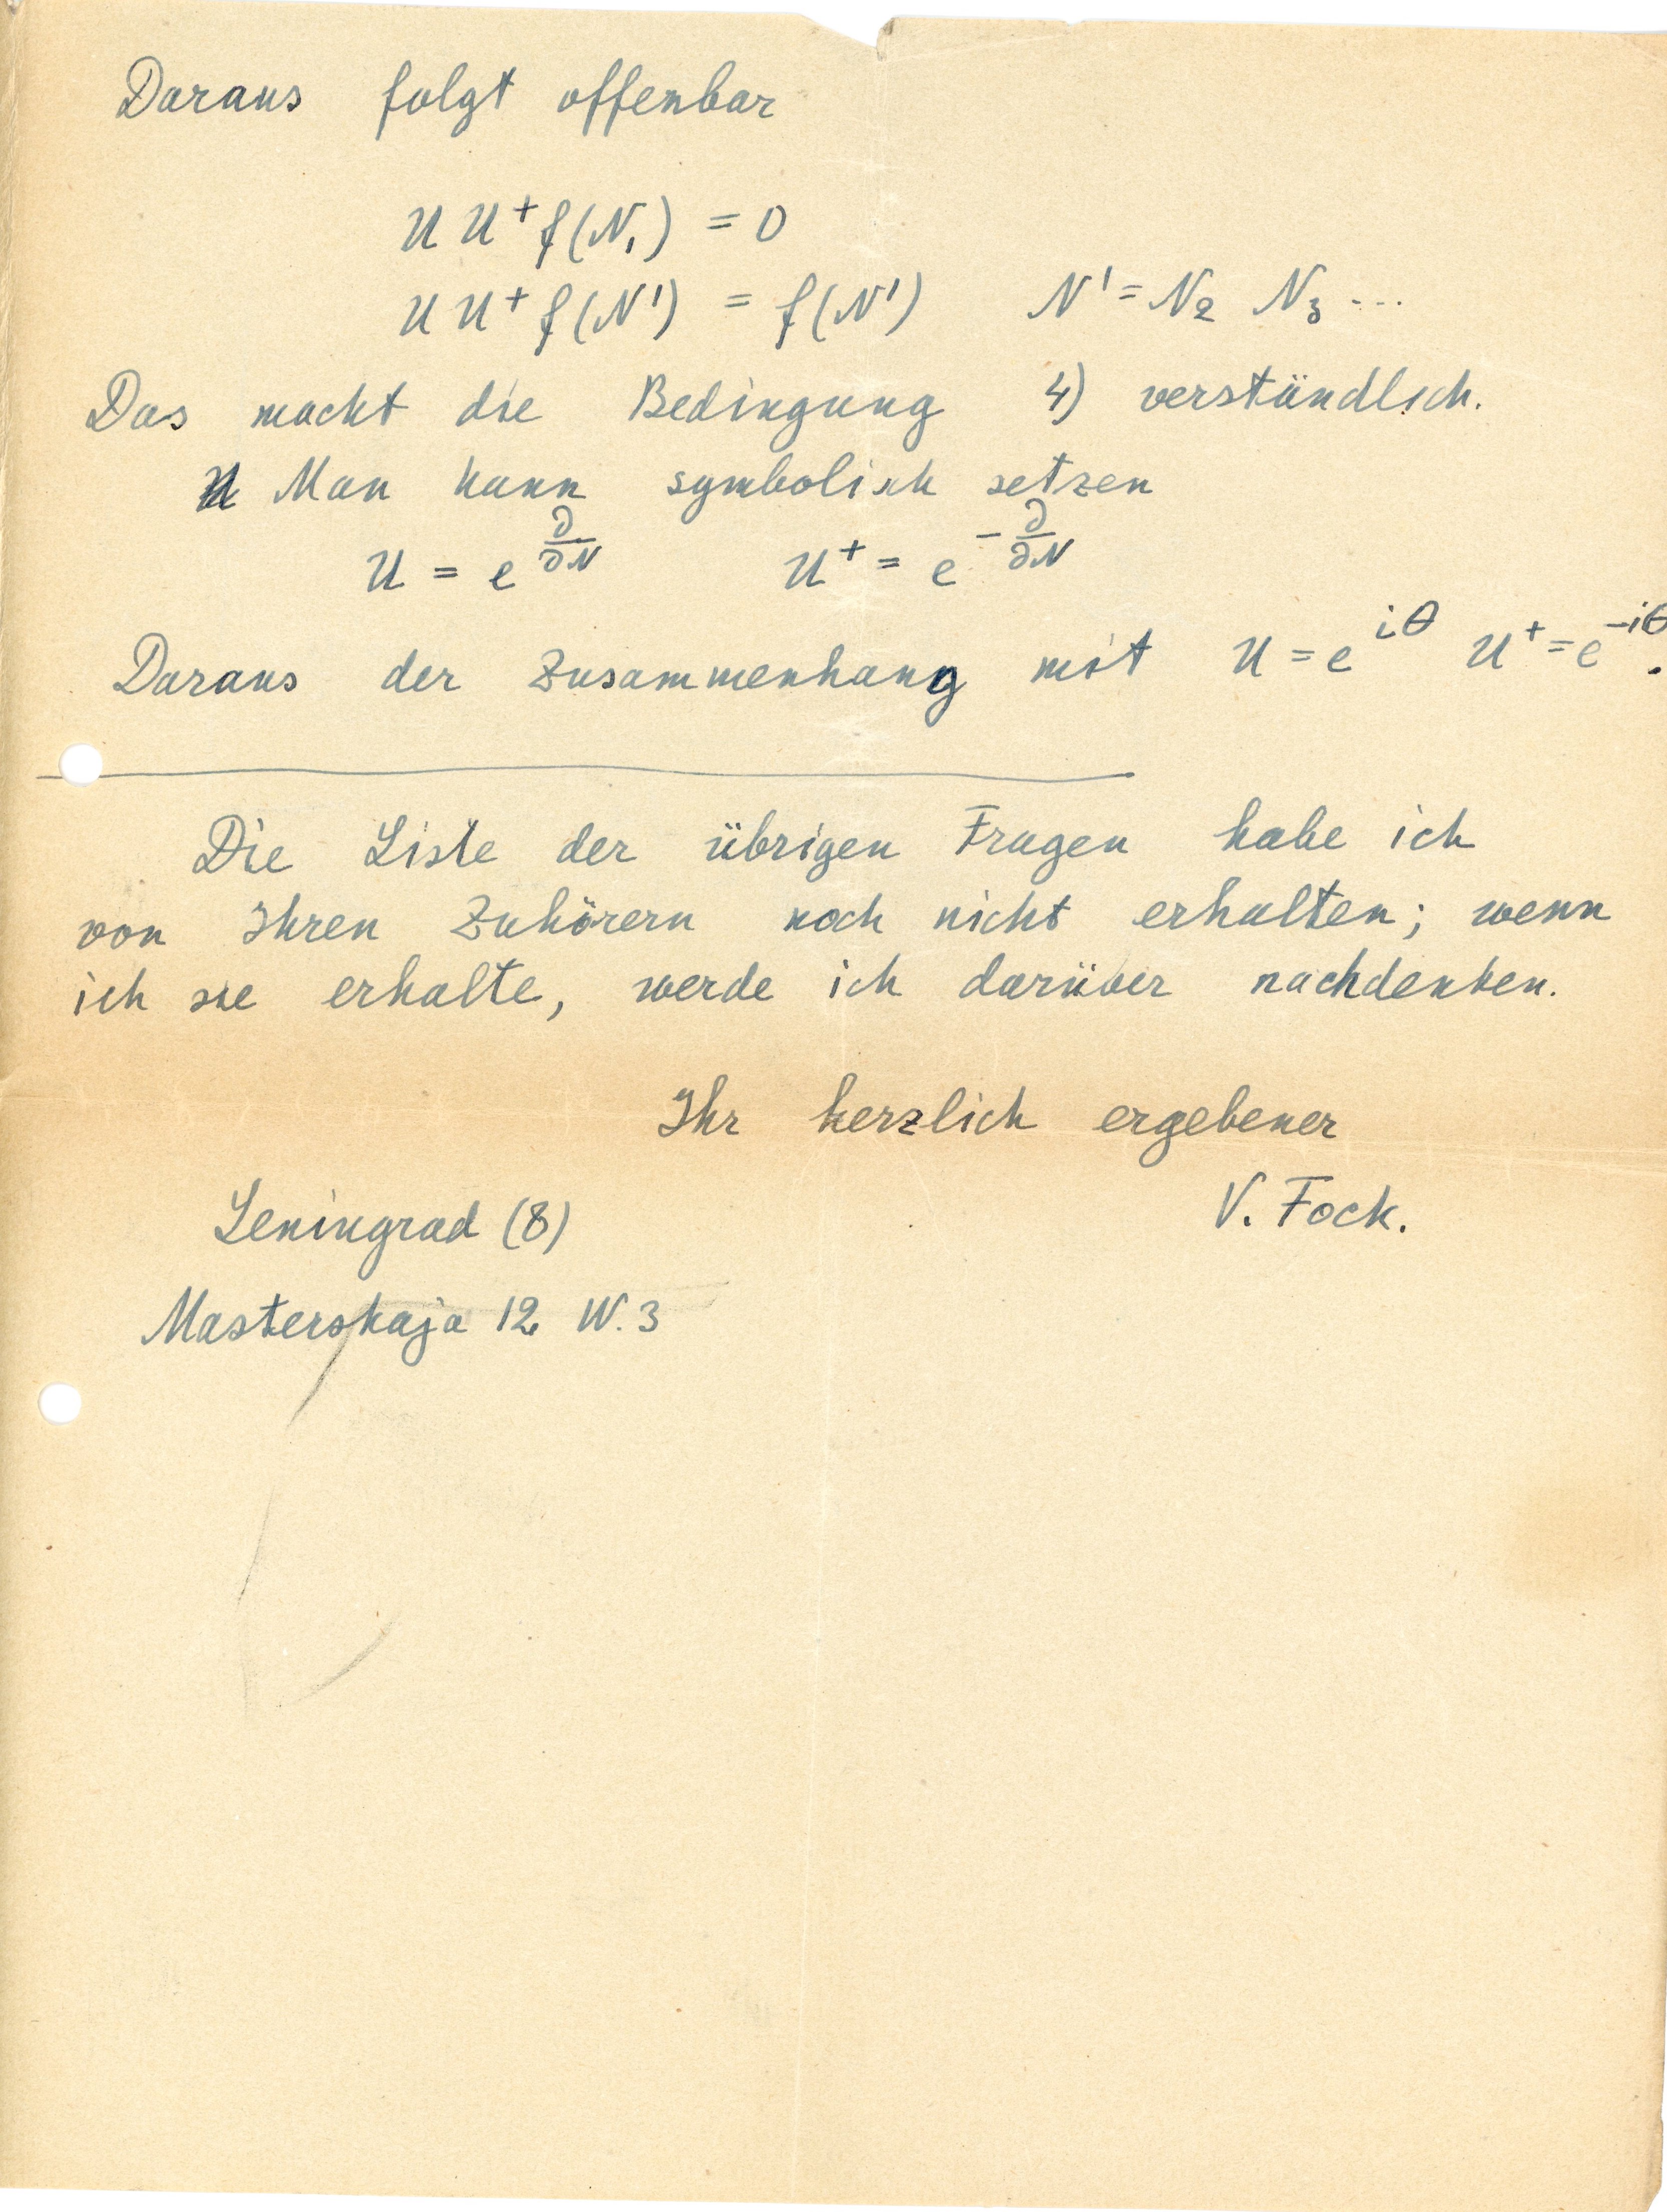 Daraus folgt offenbar
U U⁺ f(N₁) = 0
U U⁺ f(N') = f(N') N' = N₂ N₃ ...
Das macht die Bedingung 4) verständlich.
Man kann symbolisch setzen
U = e^{∂/∂N} U⁺ = e^{-∂/∂N}
Daraus der Zusammenhang mit U = e^{iθ} U⁺ = e^{-iθ}.
Die Liste der übrigen Fragen habe ich
von Ihren Zuhörern noch nicht erhalten; wenn
ich sie erhalte, werde ich darüber nachdenken.
Ihr herzlich ergebener
V. Fock.
Leningrad (8)
Masterskaja 12 W. 3